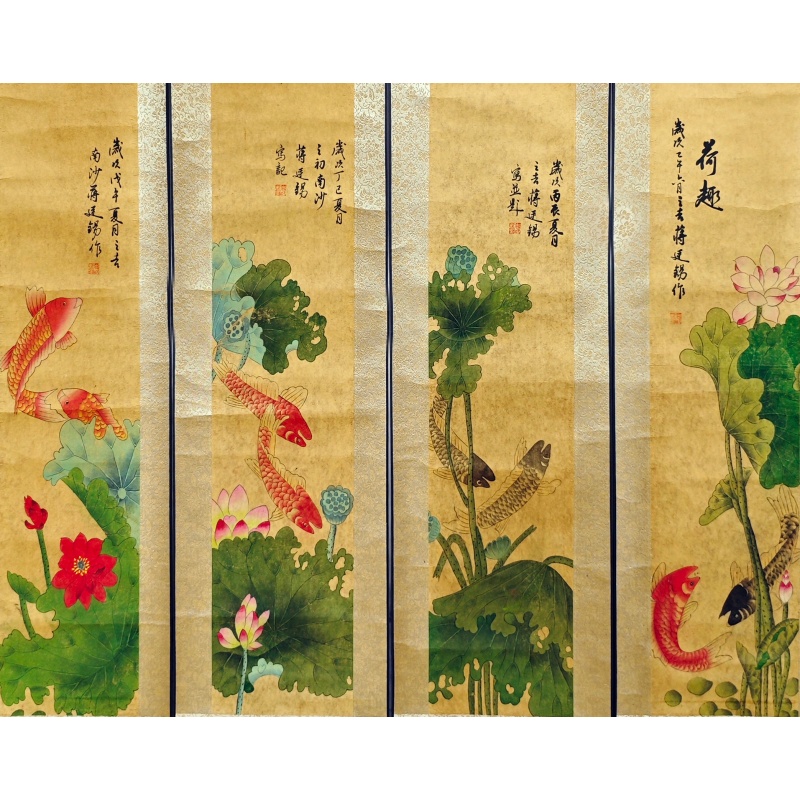 荷趣
歲次乙卯六月之吉蔣廷錫作
歲次丙辰夏月
之吉蔣廷錫
寫並題
歲次丁巳夏月
之初南沙
蔣廷錫
寫記
歲次戊午夏月之吉
南沙蔣廷錫作